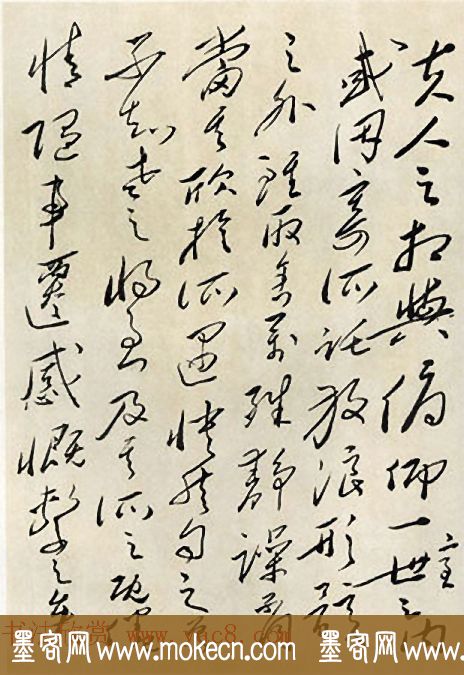 夫人之相與俯仰一世之內
室
或因寄所託放浪形骸
之外雖取舍萬殊靜躁不同
當其欣於所遇快然自足
不知老之將至及其所之既倦
情隨事遷感慨繫之矣
书法欣赏 www.yac8.com
墨客网 www.mokecn.com 墨客网